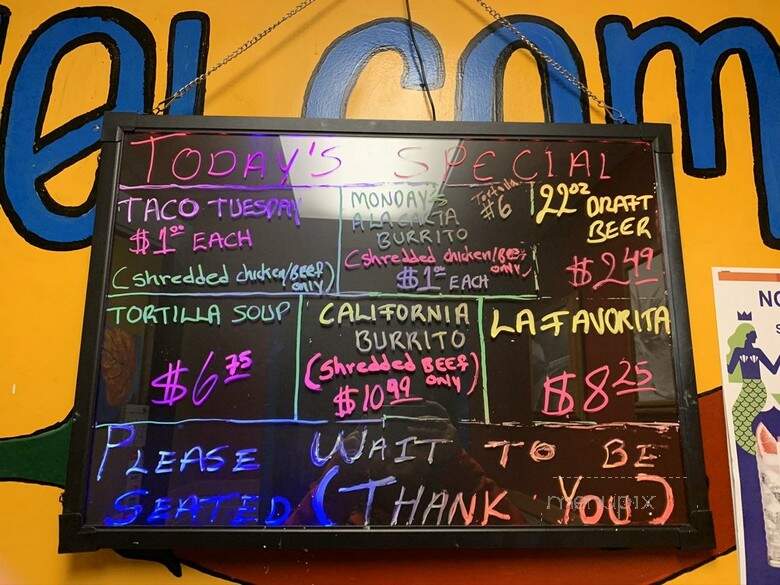 elcom
TODAY'S SPECIAL
TACO TUESDAY
$1.00 EACH
(shredded chicken/BEEF only)
MONDAY'S
ALACARTA
BURRITO
Tortilla
#6
(shredded chicken/BEEF only)
$1.00 EACH
22oz DRAFT
BEER
$2.49
TORTILLA SOUP
$6.75
CALIFORNIA
BURRITO
(Shredded BEEF only)
$10.99
LA FAVORITA
$8.25
PLEASE WAIT TO BE
SEATED (THANK YOU)
menupix
NO